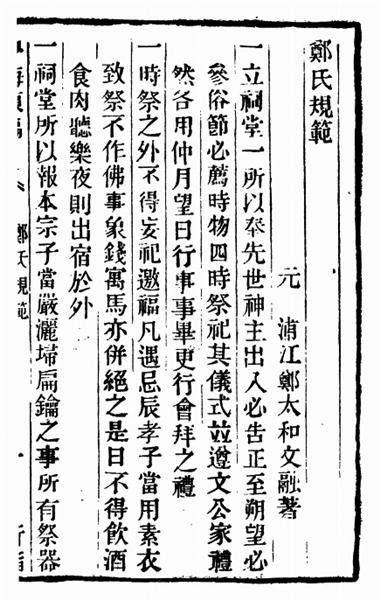 鄭氏規範
元　浦江鄭太和文融著
一立祠堂一所以奉先世神主出入必告正至朔望必
參俗節必薦時物四時祭祀其儀式並遵文公家禮
然各用仲月望日行事事畢更行會拜之禮
一時祭之外不得妄祀邀福凡遇忌辰孝子當用素衣
致祭不作佛事象錢寓馬亦併絕之是日不得飲酒
食肉聽樂夜則出宿於外
一祠堂所以報本宗子當嚴灑埽扃鑰之事所有祭器
鄭氏規範
一